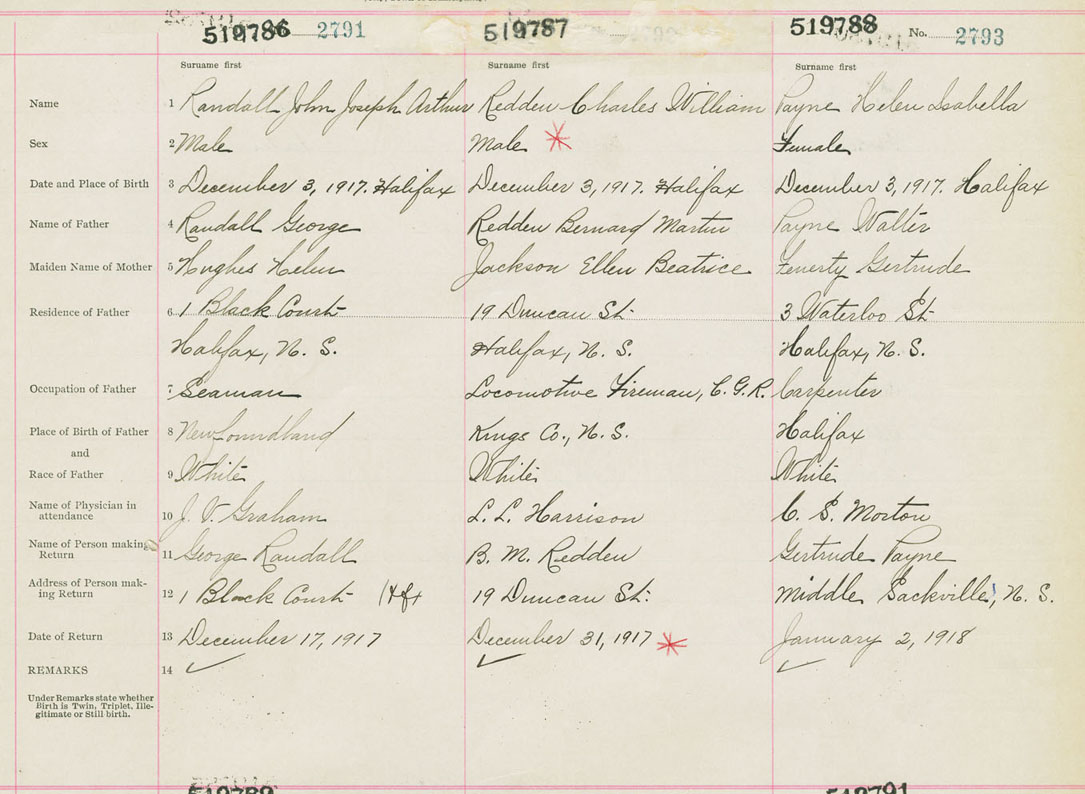 519786 2791 519787 519788 No. 2793
Surname first Surname first Surname first
Name 1 Randall John Joseph Arthur Redden Charles William Payne Helen Isabella
Sex 2 Male Male Female
Date and Place of Birth 3 December 3, 1917. Halifax December 3, 1917. Halifax December 3, 1917. Halifax
Name of Father 4 Randall George Redden Bernard Martin Payne Walter
Maiden Name of Mother 5 Hughes Helen Jackson Ellen Beatrice Fenerty Gertrude
Residence of Father 6 1 Black Court 19 Duncan St. 3 Waterloo St
Halifax, N. S. Halifax, N. S. Halifax, N. S.
Occupation of Father 7 Seaman Locomotive Fireman, C. G. R. Carpenter
Place of Birth of Father 8 Newfoundland Kings Co., N. S. Halifax
and
Race of Father 9 White White White
Name of Physician in
attendance 10 J. V. Graham L. L. Harrison C. S. Morton
Name of Person making
Return 11 George Randall B. M. Redden Gertrude Payne
Address of Person mak-
ing Return 12 1 Black Court Hfx 19 Duncan St. Middle Sackville, N. S.
Date of Return 13 December 17, 1917 December 31, 1917 January 2, 1918
REMARKS 14
Under Remarks state whether
Birth is Twin, Triplet, Ille-
gitimate or Still birth.
519789 519791